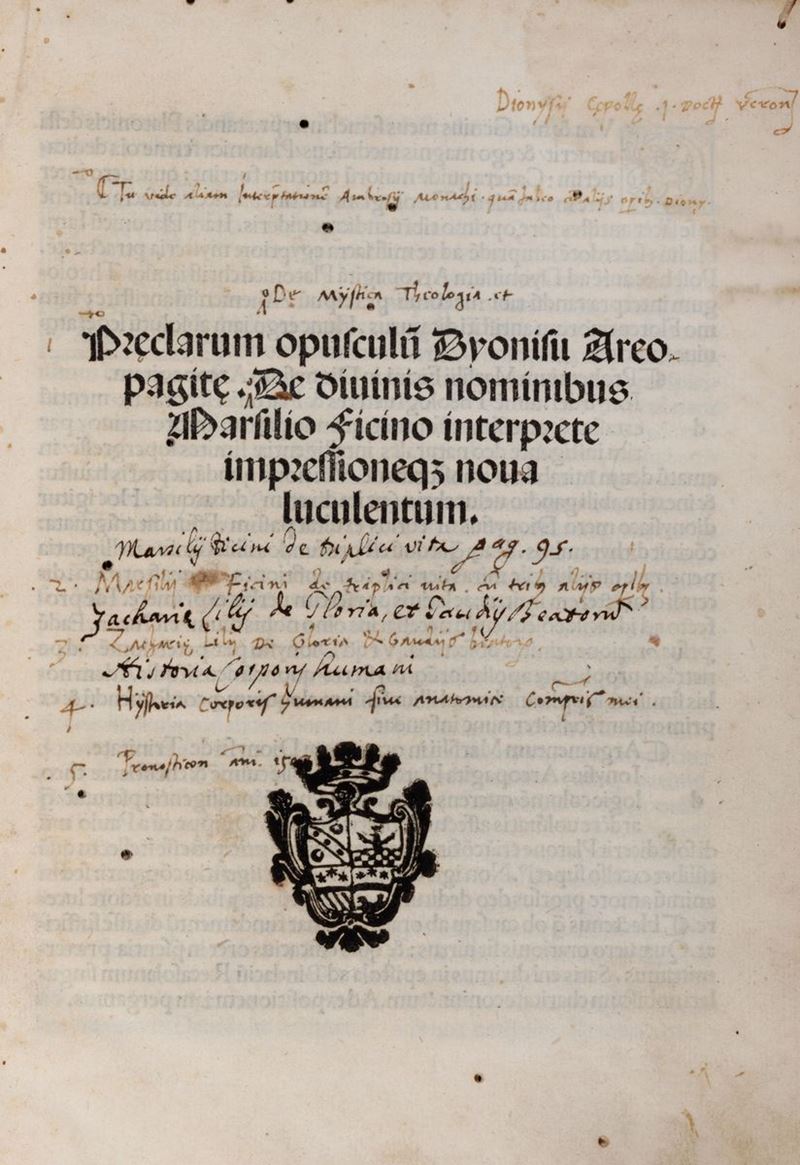 Dionysij Cepollę .J. Doct. Veron.
Tu vide aliam Interp̄tationē Ambrosij Monachi
De Mystica Theologia .et
1 Pręclarum opuſculū Dyoniſii Areo-
pagitę. De diuinis nominibus
Marſilio Ficino interprete
impreſſioneqꝫ noua
luculentum.
Marsilij Ficini de triplici vita pag. 95.
2. Marsilij Ficini de triplici vita. cū alijs
Zacharię Lilij de Gloria, et Gaudijs Beatorū
3. Zacharię Lilij De Gloria & Gaudijs beatorꝫ
Historia Corporis humani
4. Hystoria Corporis humani siue anatomice
5. Pronosticon